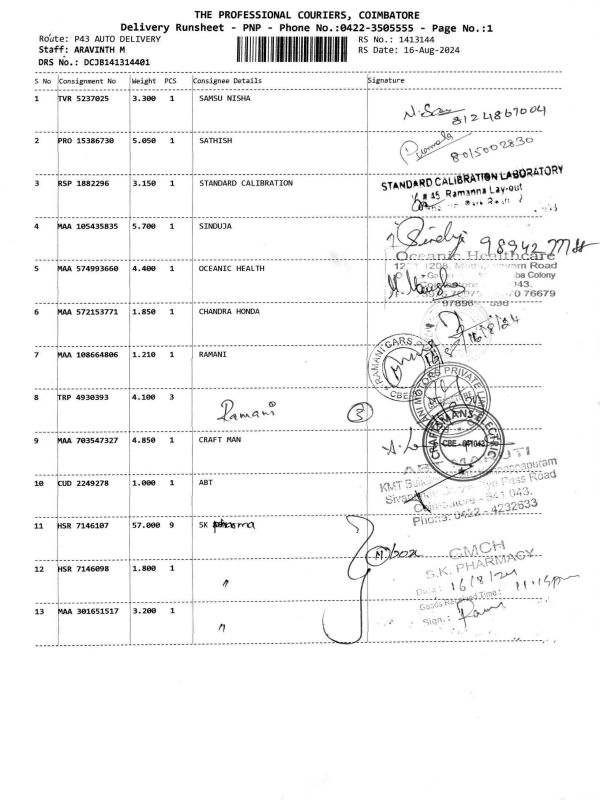 THE PROFESSIONAL COURIERS, COIMBATORE
Delivery Runsheet - PNP - Phone No.:0422-3505555 - Page No.:1
Route: P43 AUTO DELIVERY RS No.: 1413144
Staff: ARAVINTH M RS Date: 16-Aug-2024
DRS No.: DCJB141314401
S No Consignment No Weight PCS Consignee Details Signature
1 TVR 5237025 3.300 1 SAMSU NISHA
8124867004
2 PRO 15386730 5.050 1 SATHISH
8015002830
3 RSP 1882296 3.150 1 STANDARD CALIBRATION STANDARD CALIBRATION LABORATORY
# 45 Ramanna Lay-out
4 MAA 105435835 5.700 1 SINDUJA Sinduja
Oceanic Healthcare
Road
5 MAA 574993660 4.400 1 OCEANIC HEALTH
Colony
043.
76679
6 MAA 572153771 1.850 1 CHANDRA HONDA 16/8/24
7 MAA 108664806 1.210 1 RAMANI RAMANI CARS
CBE
MOTORS PRIVATE
8 TRP 4930393 4.100 3 Ramani 3
9 MAA 703547327 4.850 1 CRAFT MAN CRAFTSMANS ELECTRIC
CBE - 641043
10 CUD 2249278 1.000 1 ABT ABT MARUTI
KMT
Pass Road
Coimbatore - 641 043.
Phone: 0422 - 4232633
11 HSR 7146107 57.000 9 SK pharma 11 box
GMCH
S.K. PHARMACY
12 HSR 7146098 1.800 1 〃 Date: 16/8/24 11:15pm
Goods Received Time:
13 MAA 301651517 3.200 1 〃 Sign.: